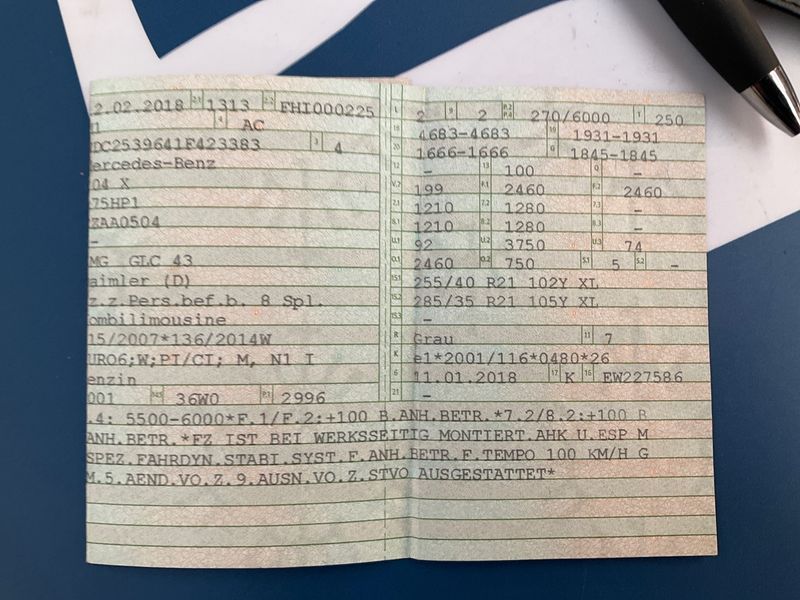 2.02.2018 2.1 1313 2.2 FHI000225
1 4 AC
DC2539641F423383 3 4
ercedes-Benz
04 X
75HP1
ZAA0504
-
MG GLC 43
aimler (D)
z.z.Pers.bef.b. 8 Spl.
ombilimousine
15/2007*136/2014W
URO6;W;PI/CI; M, N1 I
enzin
001 14.1 36W0 P.1 2996
L 2 9 2 P.2 P.4 270/6000 T 250
18 4683-4683 19 1931-1931
20 1666-1666 G 1845-1845
12 - 13 100 Q -
V.7 199 F.1 2460 F.2 2460
7.1 1210 7.2 1280 7.3 -
8.1 1210 8.2 1280 8.3 -
U.1 92 U.2 3750 U.3 74
O.1 2460 O.2 750 S.1 5 S.2 -
15.1 255/40 R21 102Y XL
15.2 285/35 R21 105Y XL
15.3 -
R Grau 11 7
K e1*2001/116*0480*26
6 11.01.2018 17 K 16 EW227586
21 -
.4: 5500-6000*F.1/F.2:+100 B.ANH.BETR.*7.2/8.2:+100 B
ANH.BETR.*FZ IST BEI WERKSSEITIG MONTIERT.AHK U.ESP M
SPEZ.FAHRDYN.STABI.SYST.F.ANH.BETR.F.TEMPO 100 KM/H G
M.5.AEND.VO.Z.9.AUSN.VO.Z.STVO AUSGESTATTET*